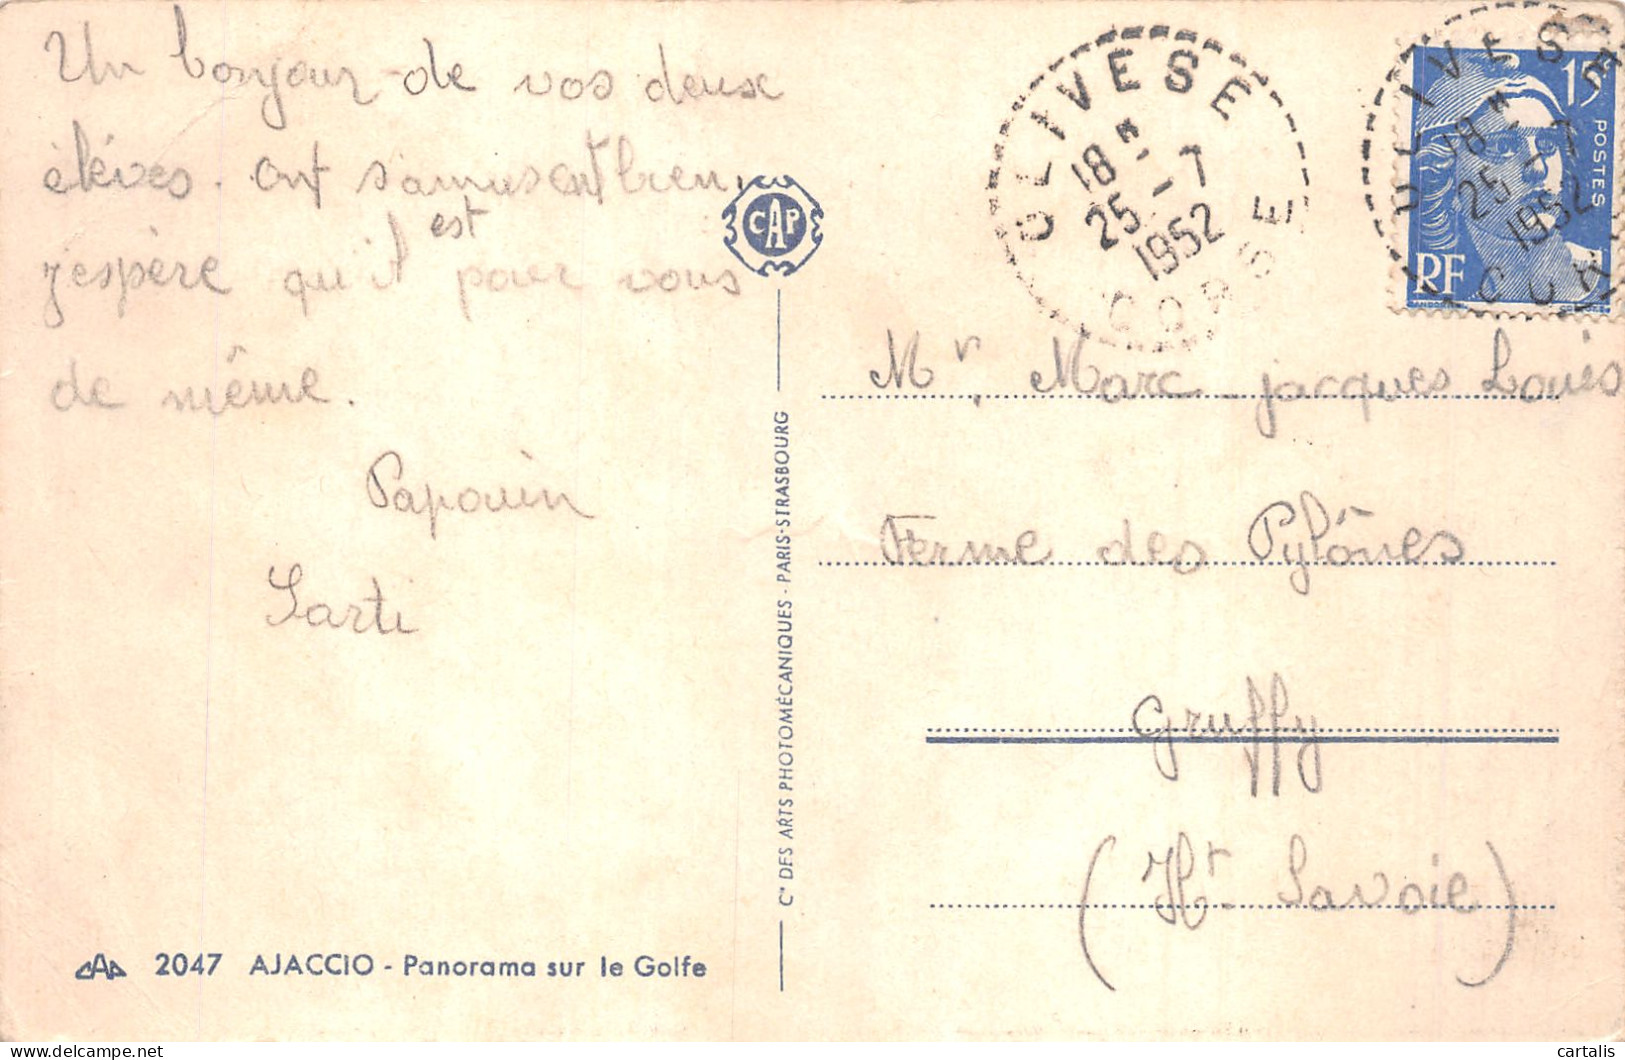 Un bonjour de vos deux
élèves. Ont s'amusent bien,
j'espère qu'il est pour vous
de même.
Papouin
Sarti
CAP
Cie DES ARTS PHOTOMÉCANIQUES - PARIS-STRASBOURG
2047 AJACCIO - Panorama sur le Golfe
OLIVESE
18 H
25 - 7
1952
CORSE
OLIVESE
18 H
25 - 7
1952
COR
15
POSTES
RF
Mr. Marc Jacques Louis
Ferme des Pylônes
Gruffy
(Ht. Savoie)
cartalis